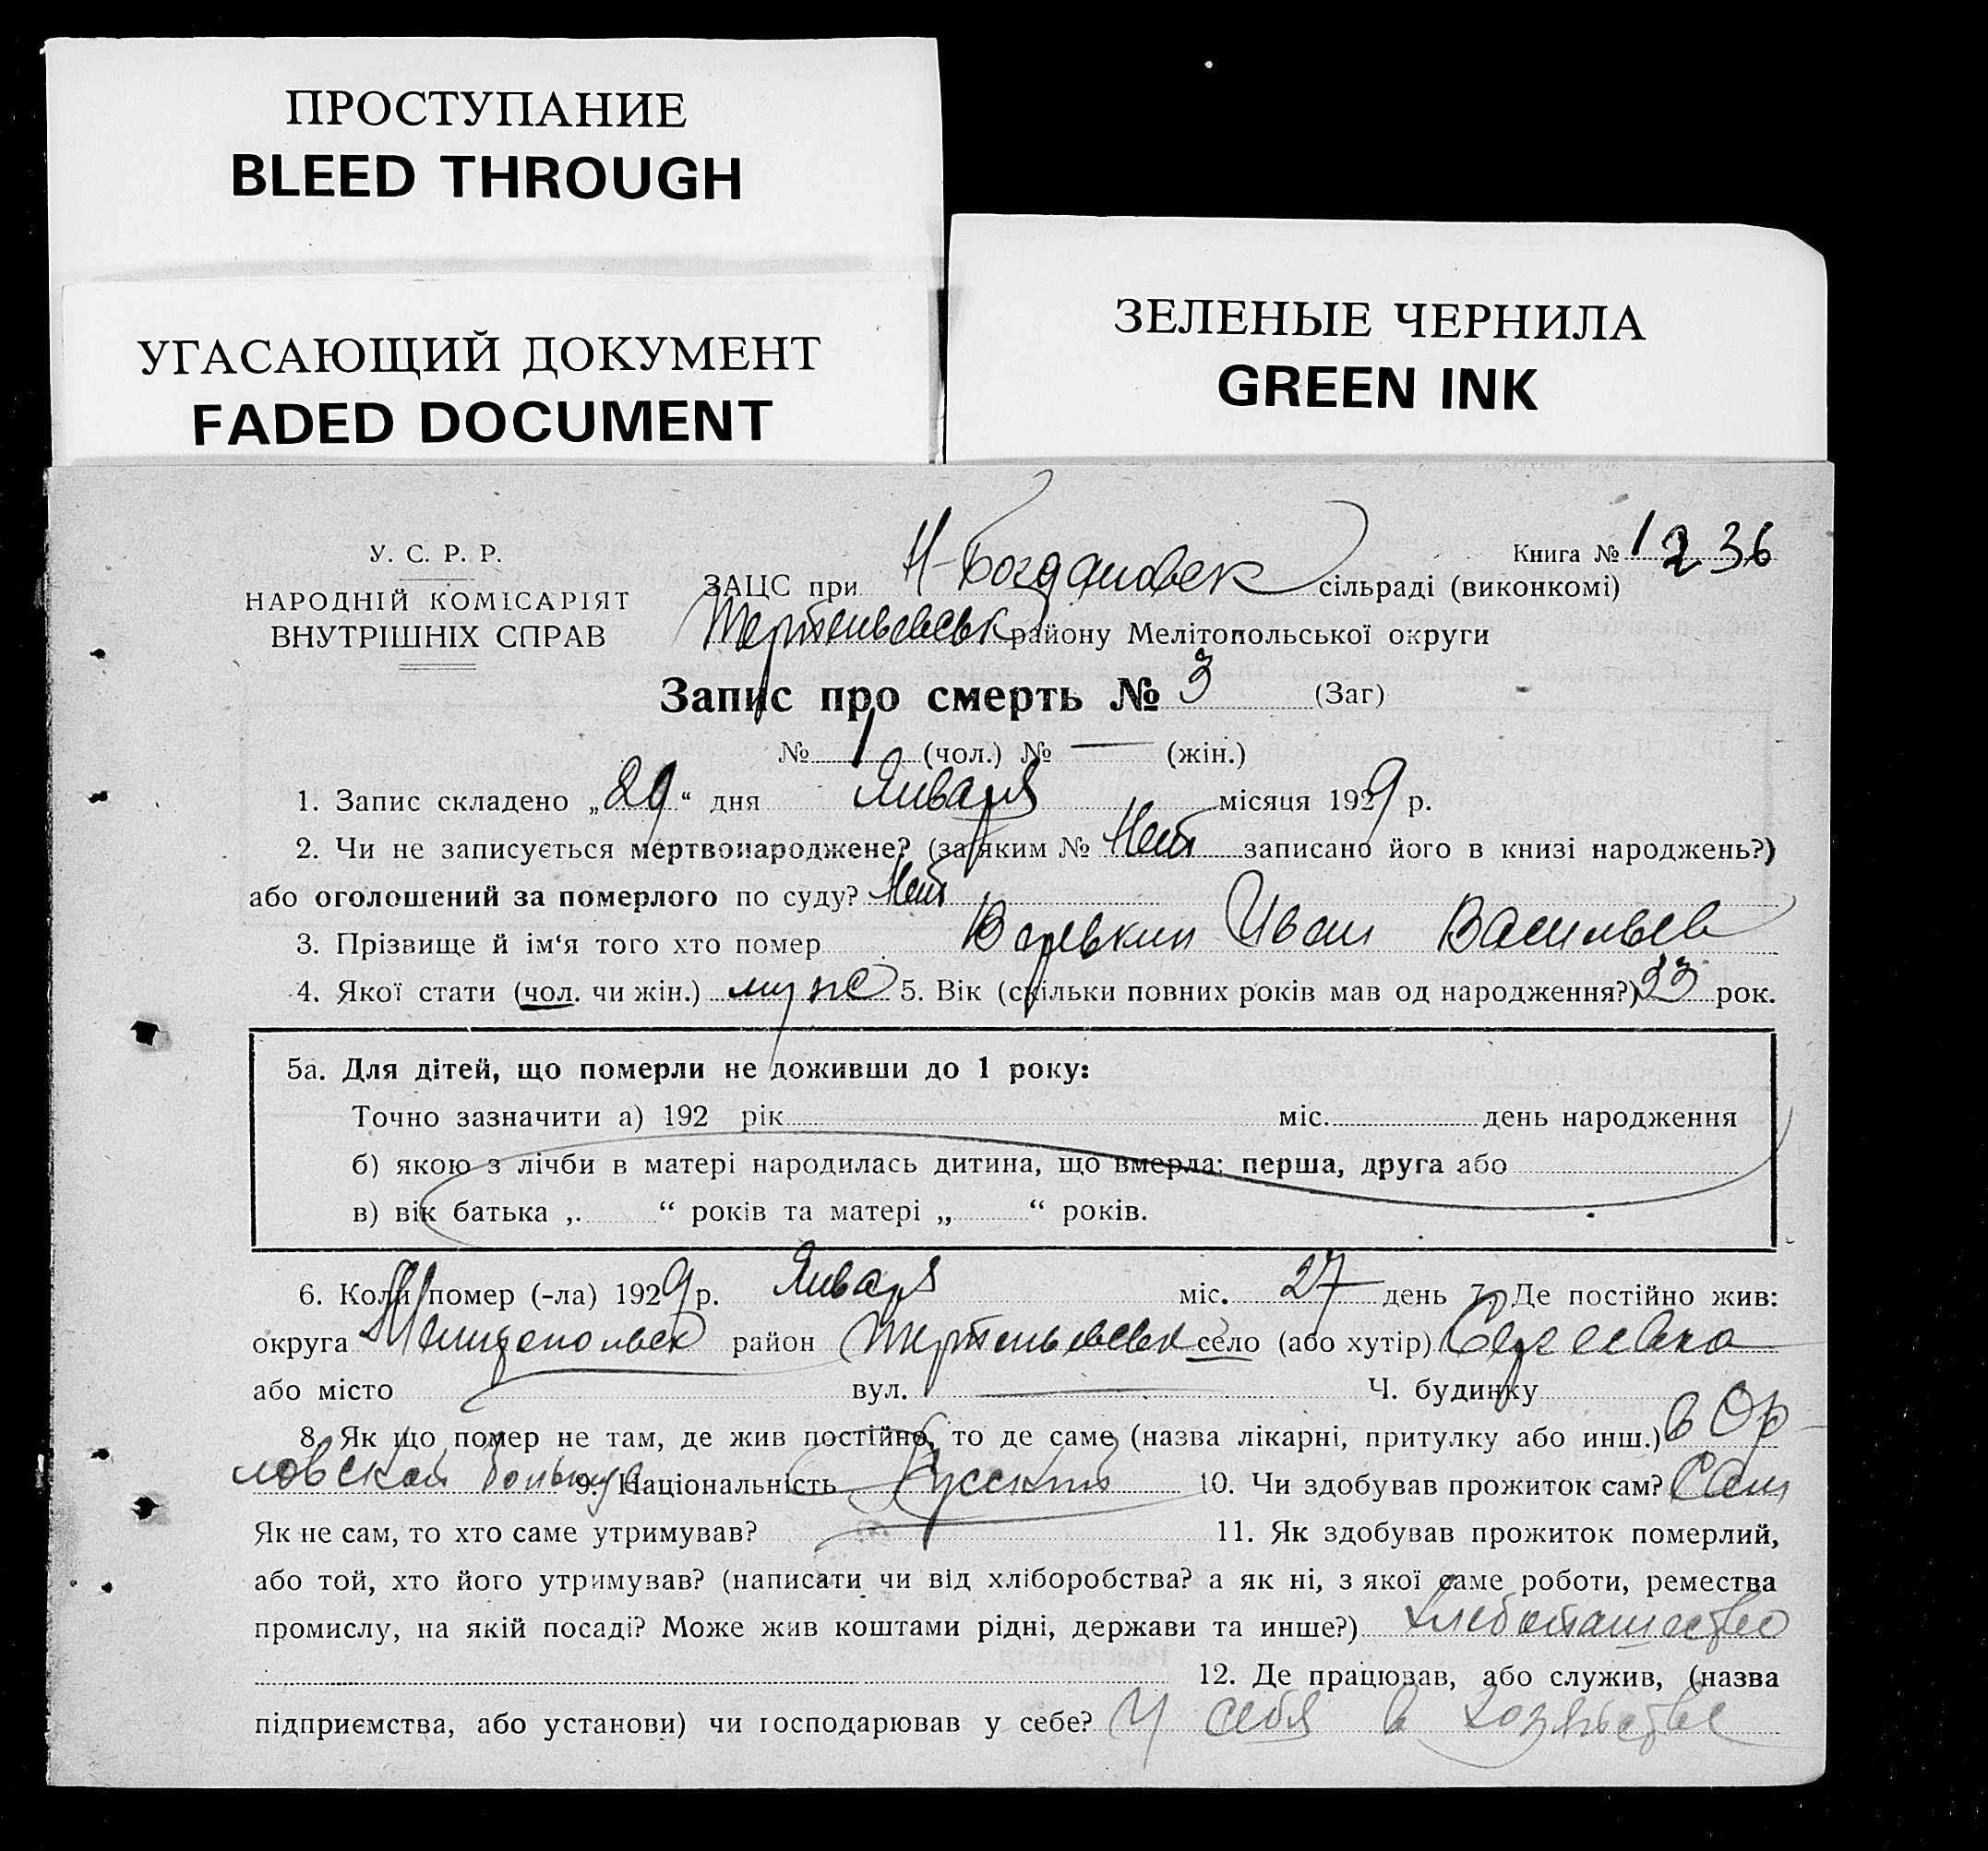 ПРОСТУПАНИЕ
BLEED THROUGH
УГАСАЮЩИЙ ДОКУМЕНТ
FADED DOCUMENT
ЗЕЛЕНЫЕ ЧЕРНИЛА
GREEN INK
У. С. Р. Р.
НАРОДНІЙ КОМІСАРІЯТ
ВНУТРІШНІХ СПРАВ
Книга № 1 236
ЗАЦС при Н-Богдановск сільраді (виконкомі)
району Мелітопольської округи
Запис про смерть № 3 (Заг)
№ 1 (чол.) № — (жін.)
1. Запис складено „29“ дня Января місяця 1929 р.
2. Чи не записується мертвонароджене? (за яким № Нет записано його в книзі народжень?)
або оголошений за померлого по суду? Нет
3. Прізвище й ім‘я того хто помер Иван Васильев
4. Якої стати (чол. чи жін.) муж 5. Вік (скільки повних років мав од народження?) рок.
5а. Для дітей, що померли не доживши до 1 року:
Точно зазначити а) 192 рік міс. день народження
б) якою з лічби в матері народилась дитина, що вмерла: перша, друга або
в) вік батька „ “ років та матері „ “ років.
6. Коли помер (-ла) 1929 р. Января міс. 27 день 7. Де постійно жив:
округа Мелитопольск район село (або хутір) Сергеевка
або місто вул. — Ч. будинку
8. Як що помер не там, де жив постійно, то де саме (назва лікарні, притулку або инш.) в Ор-
ловской больнице 9. Національність Русский 10. Чи здобував прожиток сам? Сам
Як не сам, то хто саме утримував? 11. Як здобував прожиток померлий,
або той, хто його утримував? (написати чи від хліборобства? а як ні, з якої саме роботи, ремества
промислу, на якій посаді? Може жив коштами рідні, держави та инше?) хлебопашество
12. Де працював, або служив, (назва
підприємства, або установи) чи господарював у себе? У себя в хозяйстве